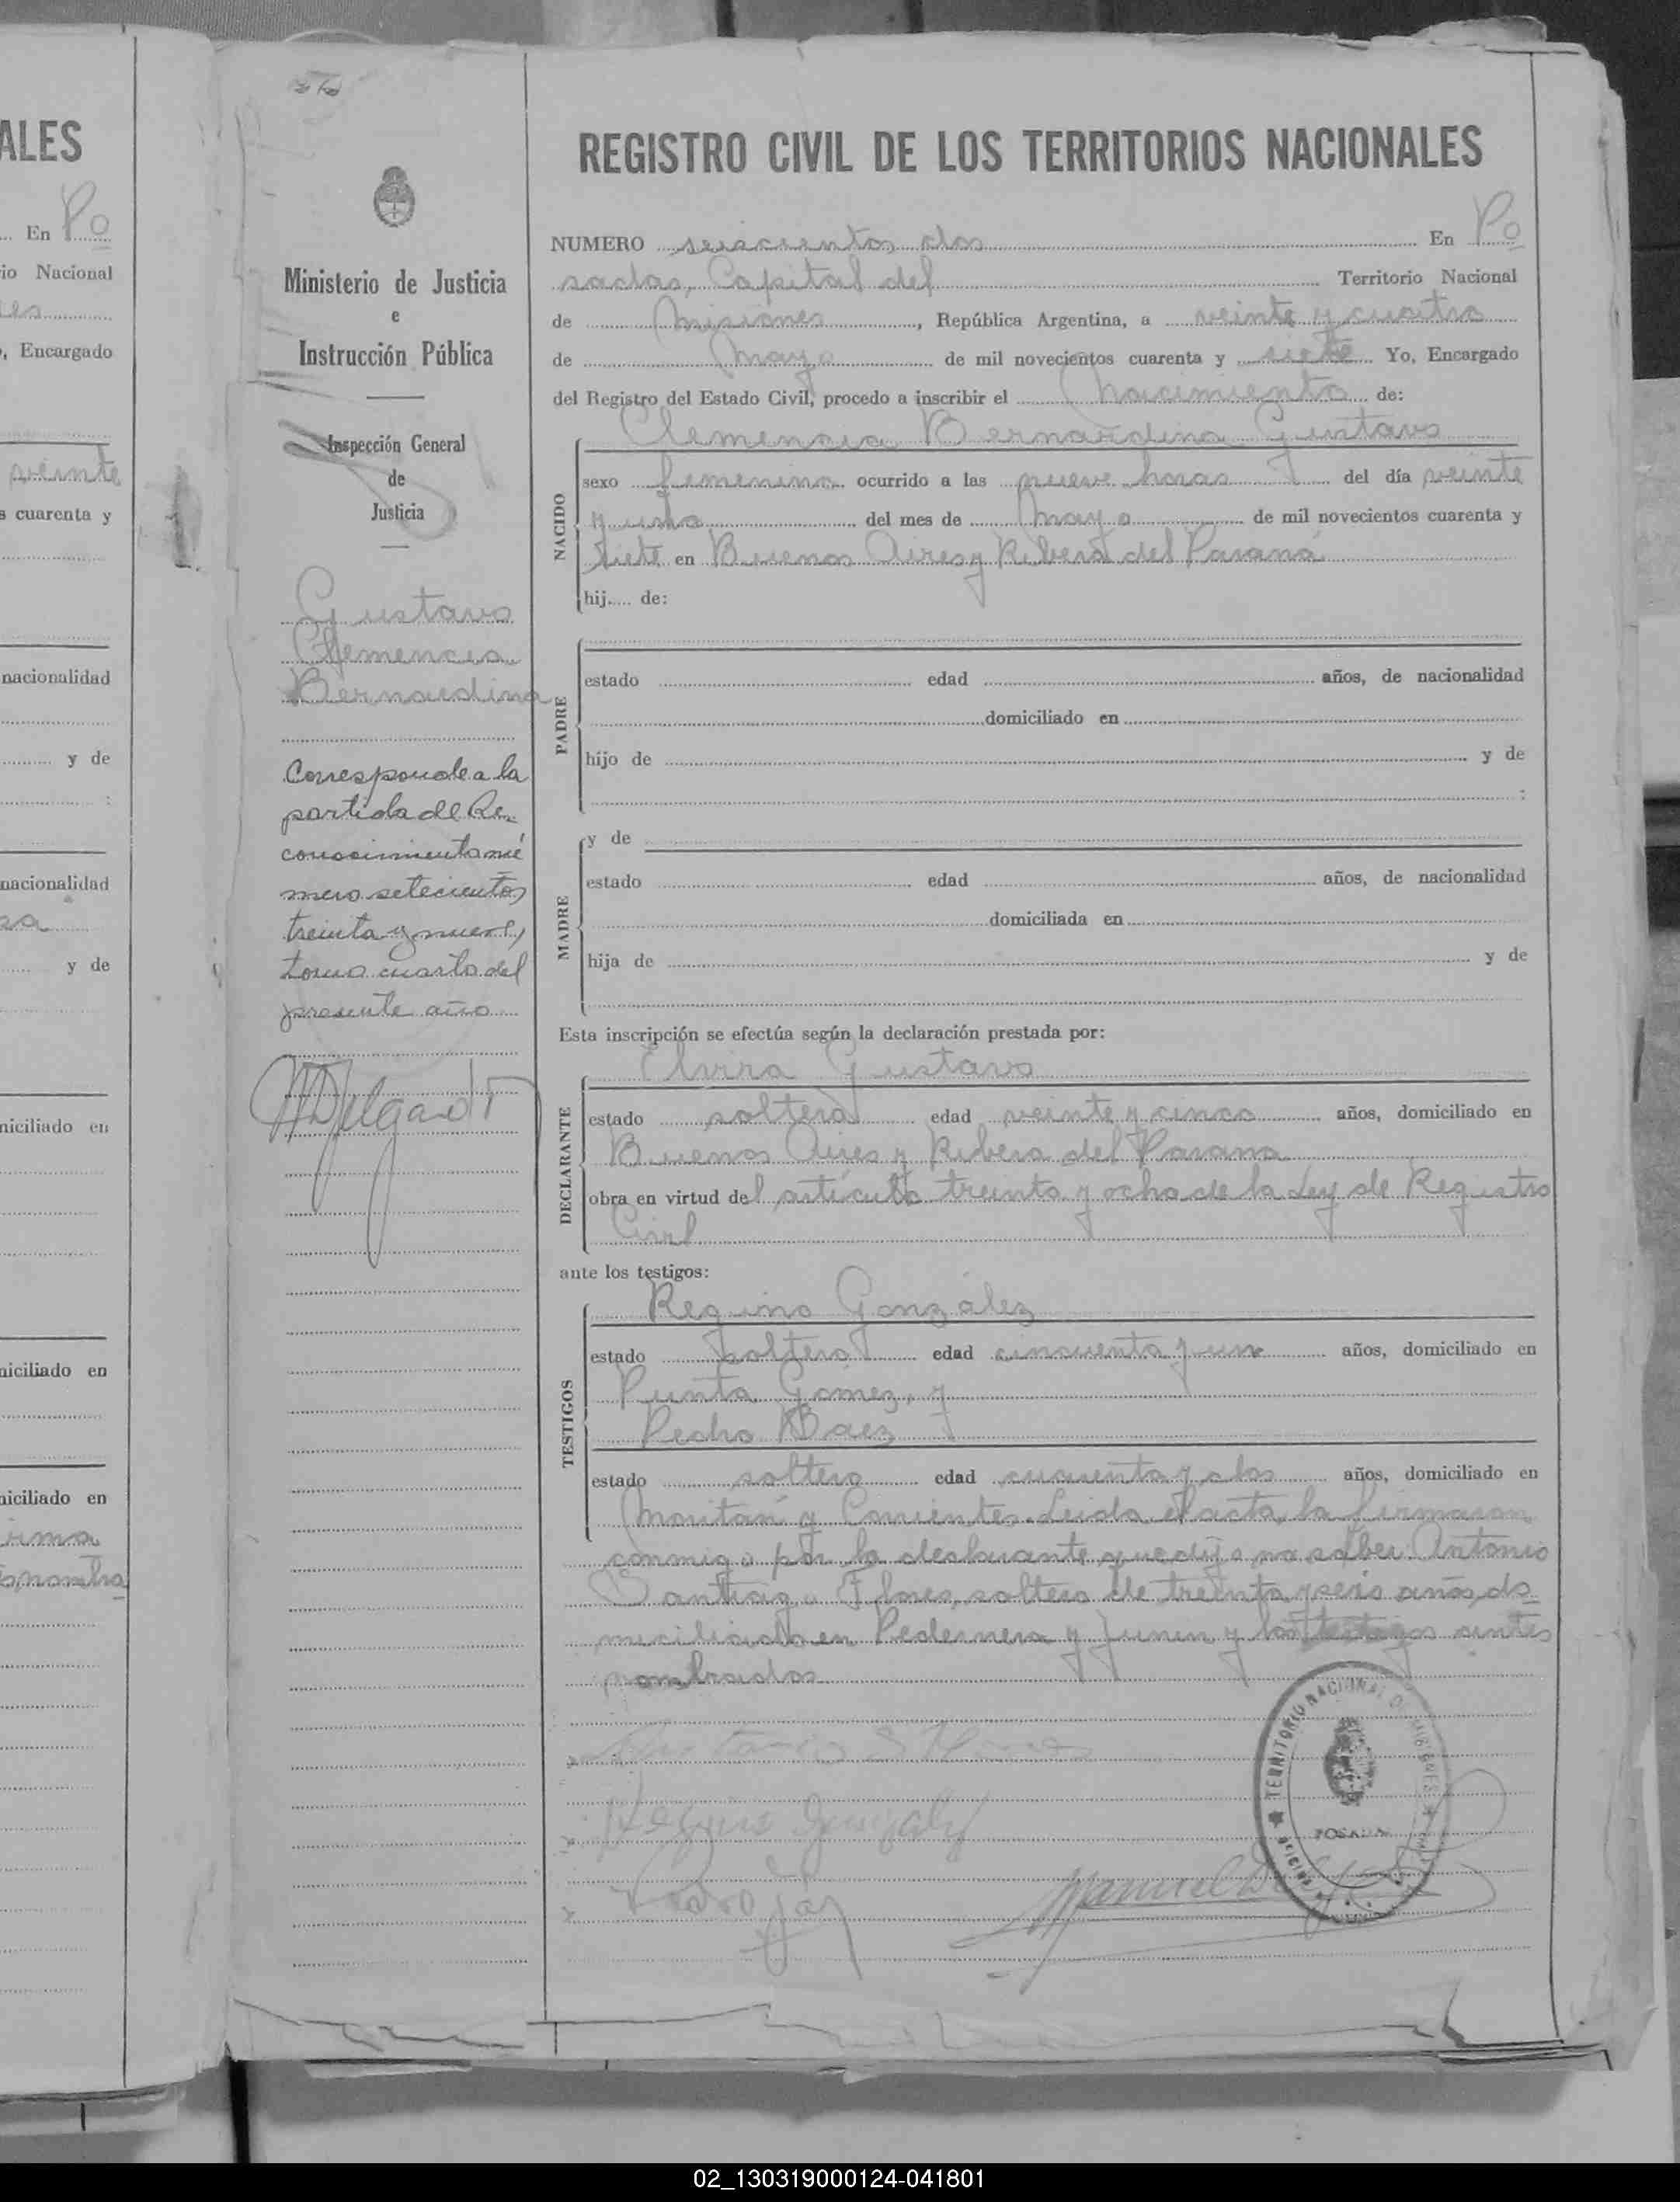 ALES
En Po
io Nacional
es
, Encargado
veinte
s cuarenta y
nacionalidad
y de
:
nacionalidad
y de
niciliado en
niciliado en
niciliado en
irma
nombra
REGISTRO CIVIL DE LOS TERRITORIOS NACIONALES
Ministerio de Justicia
e
Instrucción Pública
Inspección General
de
Justicia
Gustavo
Clemencia
Bernardina
Corresponde a la
partida de Re-
conocimiento nú
mero setecientos
treinta y nueve,
tomo cuarto del
presente año
MDelgado
NUMERO seiscientos dos En Po
sadas, Capital del Territorio Nacional
de Misiones, República Argentina, a veinte y cuatro
de Mayo de mil novecientos cuarenta y siete Yo, Encargado
del Registro del Estado Civil, procedo a inscribir el Nacimiento de:
Clemencia Bernardina Gustavo
NACIDO
sexo femenino ocurrido a las nueve horas del día veinte
y uno del mes de Mayo de mil novecientos cuarenta y
siete en Buenos Aires y Ribera del Paraná
hij.... de:
PADRE
estado edad años, de nacionalidad
domiciliado en
hijo de y de
:
MADRE
y de
estado edad años, de nacionalidad
domiciliada en
hija de y de
Esta inscripción se efectúa según la declaración prestada por:
Elvira Gustavo
DECLARANTE
estado soltera edad veinte y cinco años, domiciliado en
Buenos Aires y Ribera del Parana
obra en virtud del artículo treinta y ocho de la Ley de Registro
Civil
ante los testigos:
TESTIGOS
Regino González
estado soltero edad cincuenta y un años, domiciliado en
Punta Gómez, y
Pedro Baez
estado soltero edad cuarenta y dos años, domiciliado en
y Corrientes. Leida el acta, la firmaron
conmigo por la declarante que dijo no saber: Antonio
Santiago Flores, soltero de treinta y seis años, do
miciliado en Pedernera y Junin y los testigos antes
nombrados
Antonio S Flores
Regino Gonzalez
Pedro
Manuel Delgado
TERRITORIO NACIONAL DE MISIONES
POSADAS
02_130319000124-041801